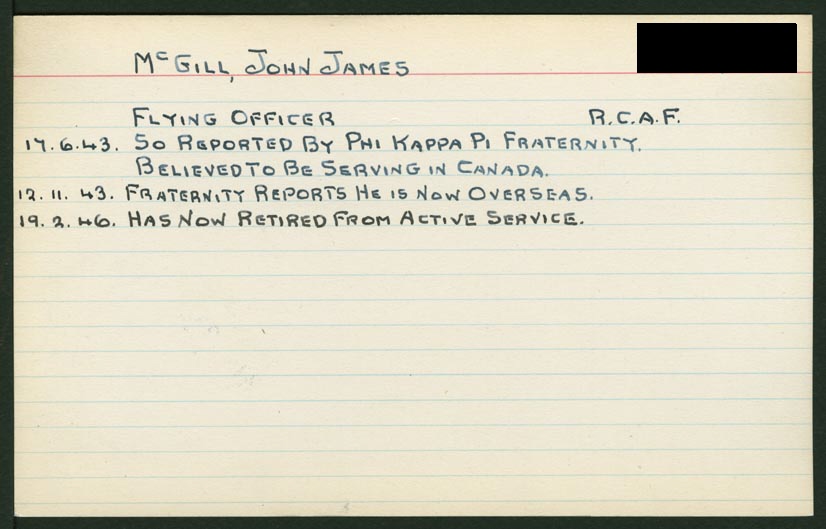 McGILL, JOHN JAMES
FLYING OFFICER R.C.A.F.
17.6.43. SO REPORTED BY PHI KAPPA PI FRATERNITY.
BELIEVED TO BE SERVING IN CANADA.
12.11.43. FRATERNITY REPORTS HE IS NOW OVERSEAS.
19.2.46. HAS NOW RETIRED FROM ACTIVE SERVICE.